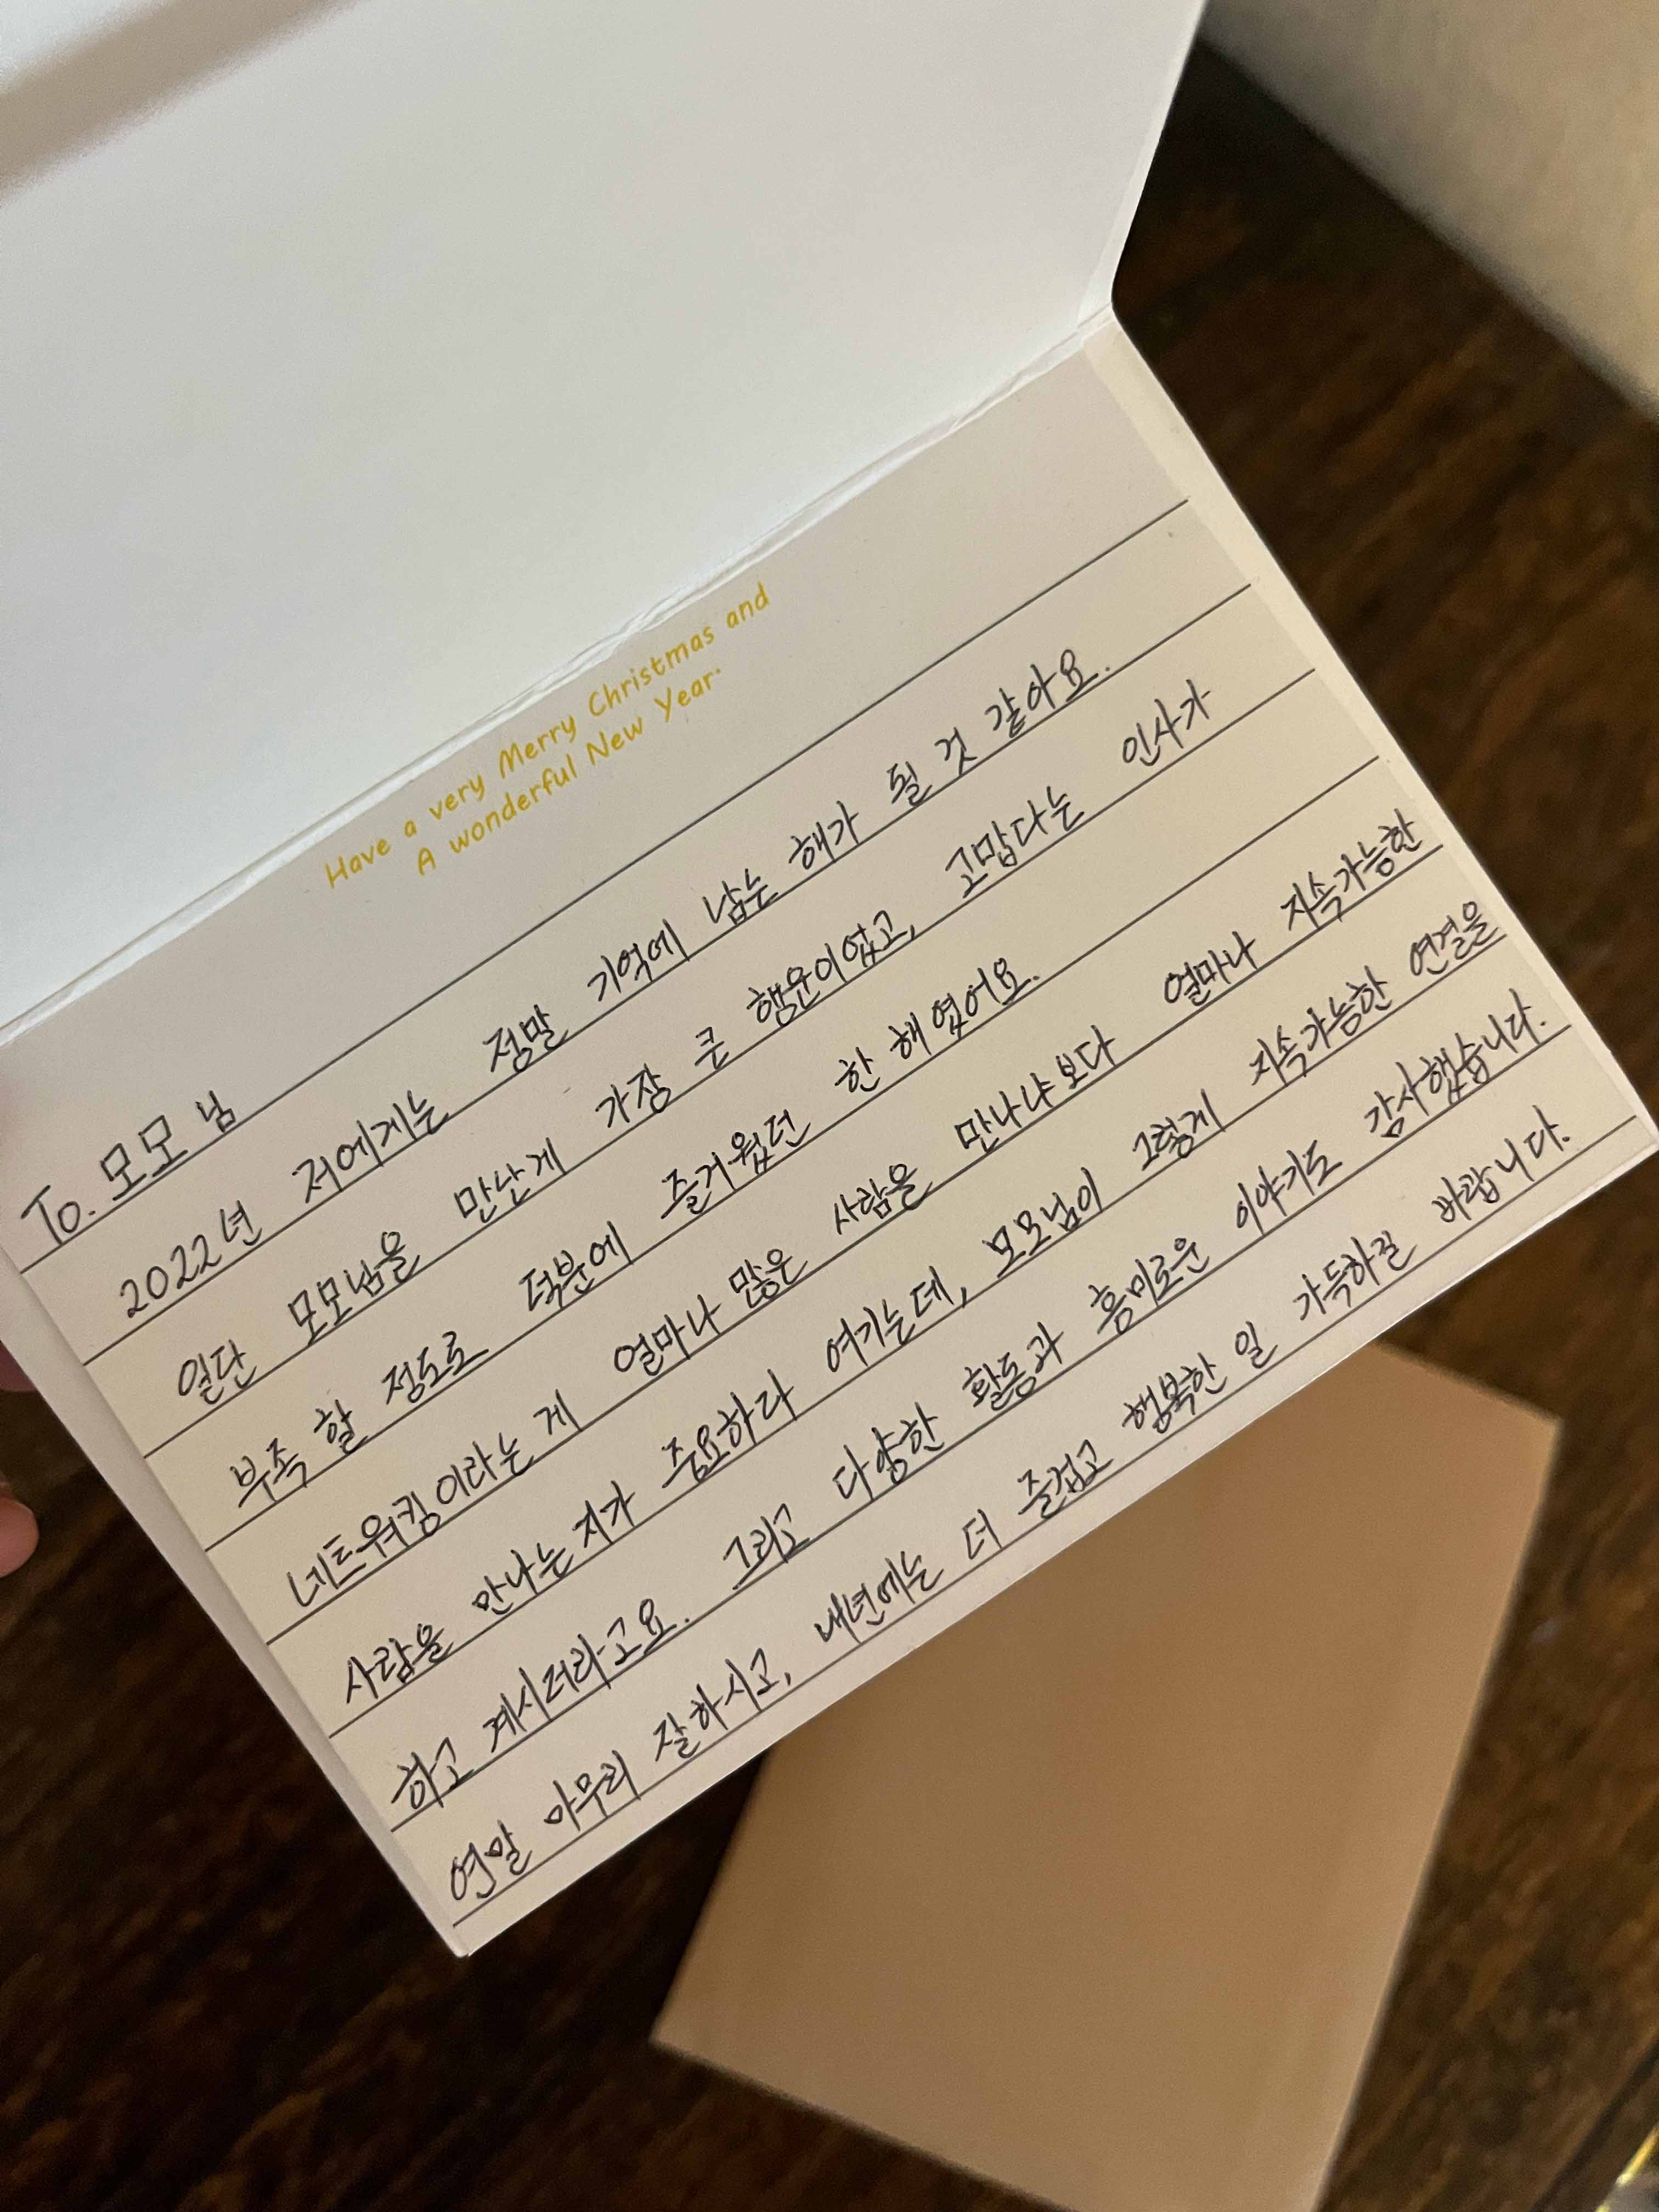 Have a very Merry Christmas and
A wonderful New Year.
To. 모모 님
2022년 저에게는 정말 기억에 남는 해가 될 것 같아요.
일단 모모님을 만난게 가장 큰 행운이었고, 고맙다는 인사가
부족 할 정도로 덕분에 즐거웠던 한 해였어요.
네트워킹이라는 게 얼마나 많은 사람을 만나냐보다 얼마나 지속가능한
사람을 만나는지가 중요하다 여기는데, 모모님이 그렇게 지속가능한 연결을
하고 계시더라고요. 그리고 다양한 활동과 흥미로운 이야기도 감사했습니다.
연말 마무리 잘하시고, 내년에는 더 즐겁고 행복한 일 가득하길 바랍니다.